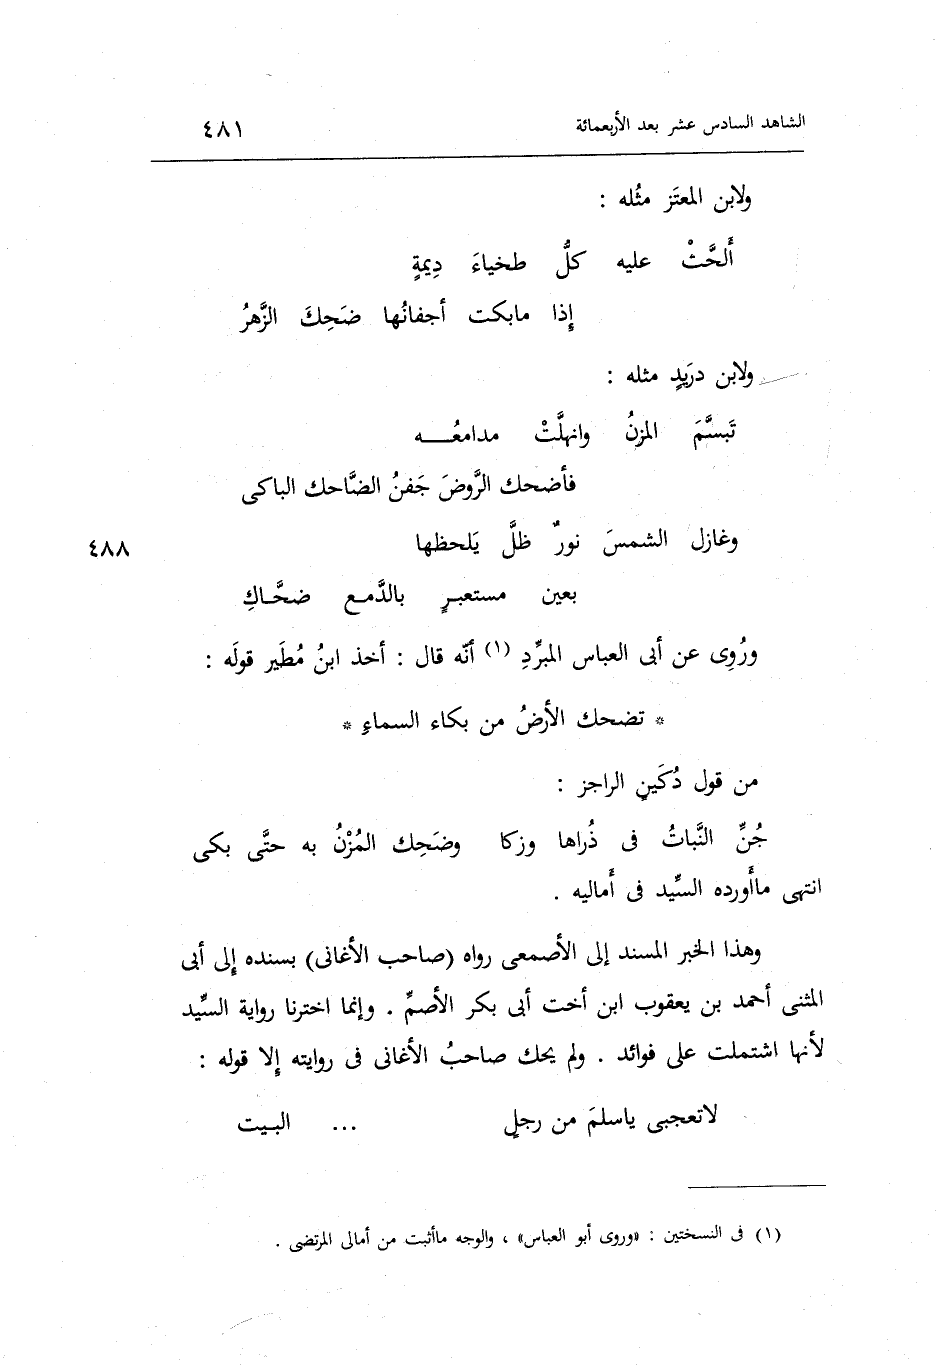 الشاهد السادس عشر بعد الأربعمائة ٤٨١
ولابن المعتَز مثُله :
أَلحَّتْ عليه كلُّ طخياءَ دِيمةٍ
إِذا مابكت أجفانُها ضَحِكَ الزَّهرُ
ولابن درَيدٍ مثله :
تَبسَّمَ المزنُ وانهلَّتْ مدامعُـــه
فأضحك الرَّوضَ جَفنُ الضَّاحك الباكى
وغازل الشمسَ نورٌ ظلَّ يَلحظها ٤٨٨
بعين مستعبـرٍ بالدَّمـع ضحَّـاكِ
ورُوِى عن أبى العباس المبرِّدِ (١) أنّه قال : أخذ ابنُ مُطَير قولَه :
* تضحك الأرضُ من بكاء السماءِ *
من قول دُكَينٍ الراجز :
جُنِّ النَّباتُ فى ذُراها وزكا وضَحِك المُزْنُ به حتَّى بكى
انتهى ماأَورده السيِّد فى أَماليه .
وهذا الخبر المسند إلى الأصمعى رواه (صاحب الأغانى) بسنده إِلى أبى
المثنى أحمد بن يعقوب ابن أخت أبى بكر الأصمِّ . وإنما اخترنا رواية السيِّد
لأنها اشتملت على فوائد . ولم يحك صاحبُ الأغانى فى روايته إِلا قوله :
لاتعجبى ياسلمَ من رجلٍ ... البـيت
(١) فى النسختين : «وروى أبو العباس» ، والوجه ماأثبت من أمالى المرتضى .